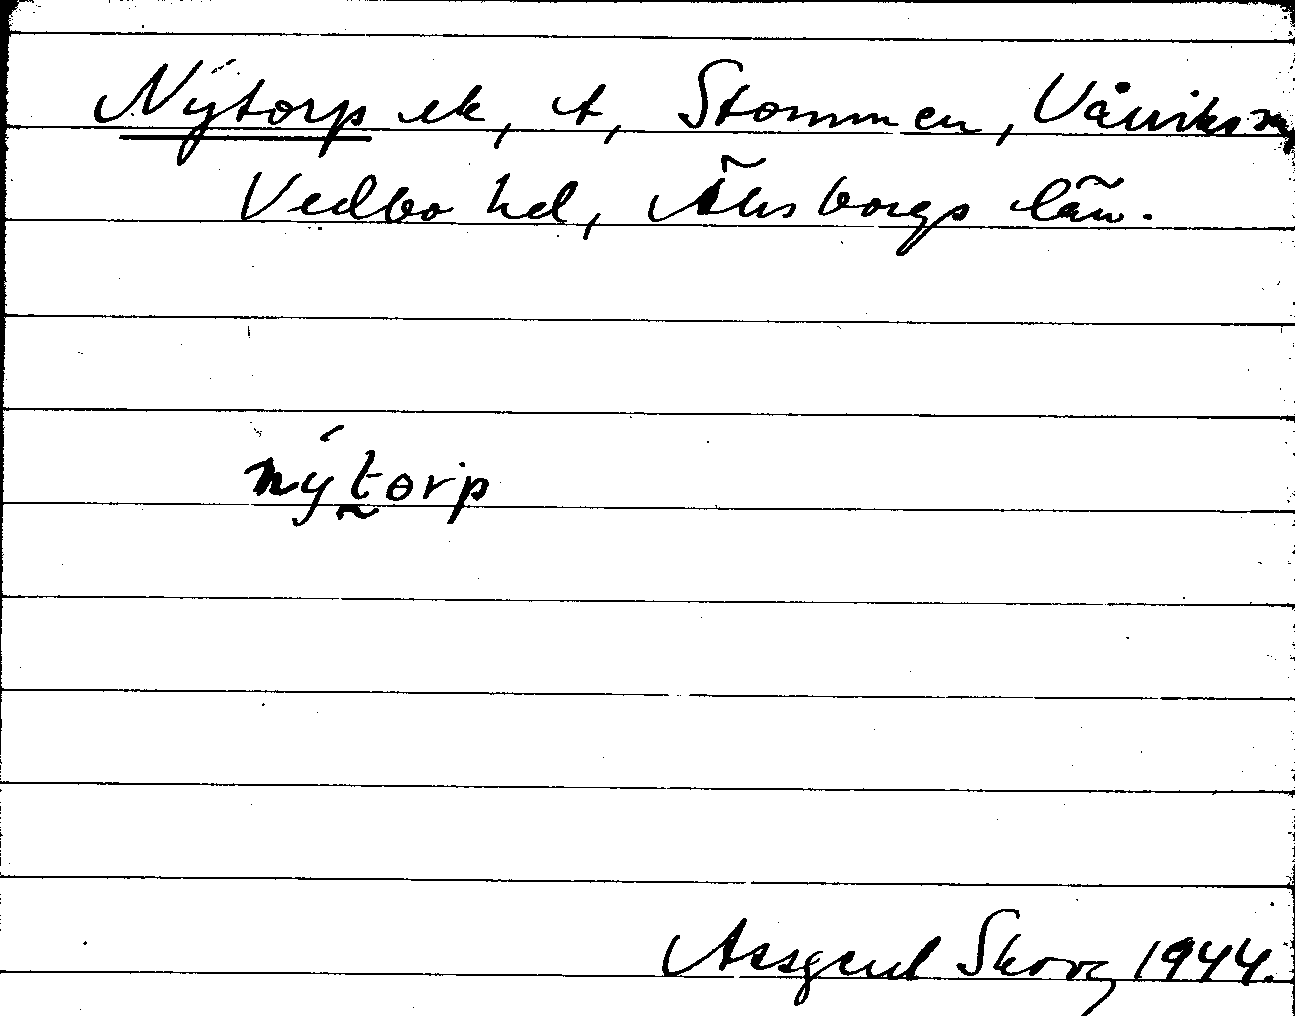 Nýtorp ek, t, Stommen, Vårviks sn,
Vedbo hd, Älvsborgs län.
nýt̰orp
Assgerd Skorg 1944.